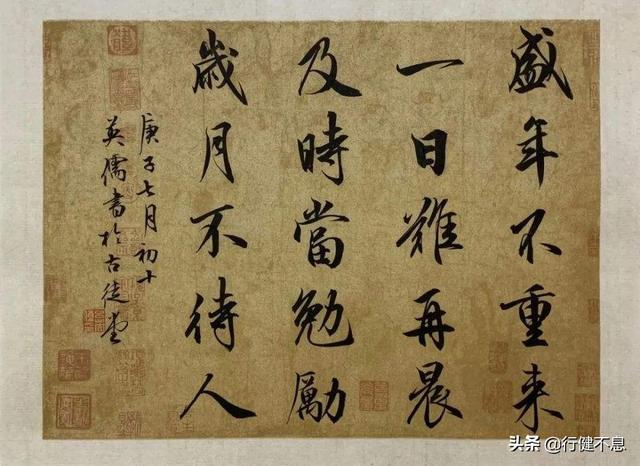 盛年不重来
一日難再晨
及時當勉勵
歲月不待人
庚子七月初十
英儒書於古徒堂
头条 @行健不息